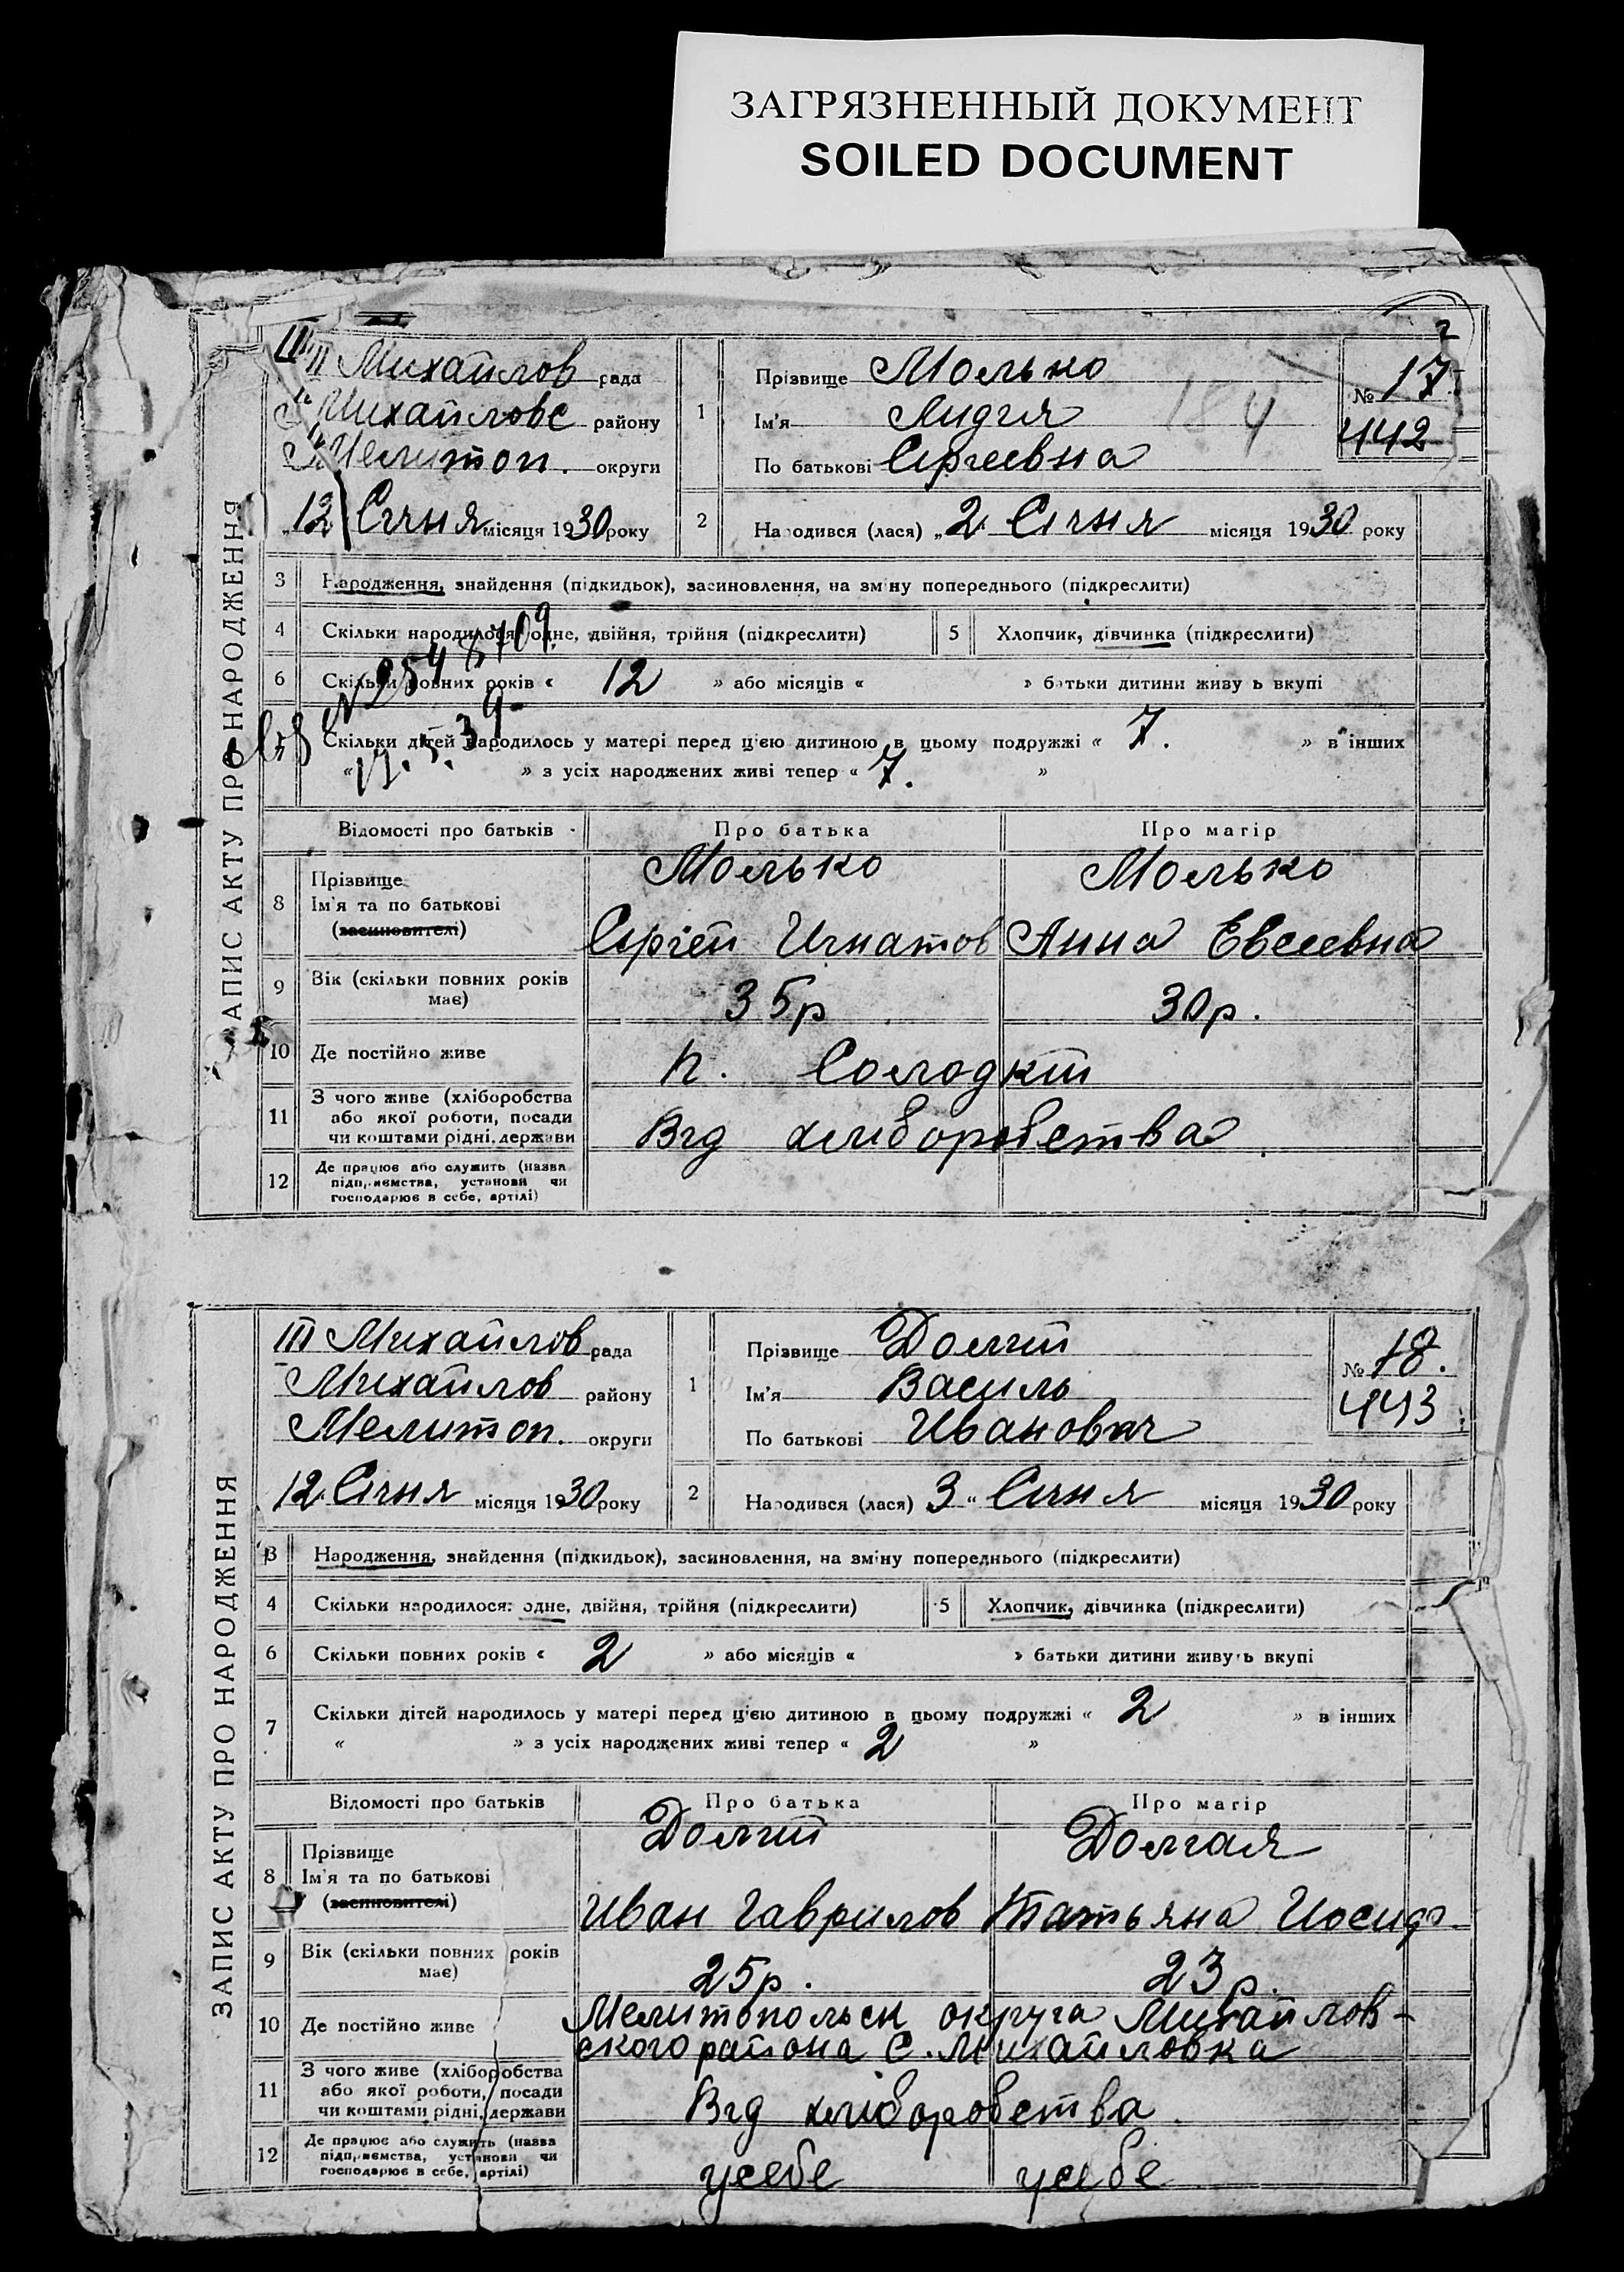 ЗАГРЯЗНЕННЫЙ ДОКУМЕНТ
SOILED DOCUMENT
2
ЗАПИС АКТУ ПРО НАРОДЖЕННЯ
III Михайлов рада
Михайловс району
Мелитоп. округи
12 Січня місяця 1930 року
1
Прізвище Молько
Ім'я Лидія
По батькові Сергеевна
184
№ 17
442
2
Народився (лася) „2 Січня місяця 1930 року
3 Народження, знайдення (підкидьок), засиновлення, на зміну попереднього (підкреслити)
4 Скільки народилося: одне, двійня, трійня (підкреслити)
5 Хлопчик, дівчинка (підкреслити)
6 Скільки повних років « 12 » або місяців « » батьки дитини живуть вкупі
Скільки дітей народилось у матері перед цією дитиною в цьому подружжі « 7. » в інших
« » з усіх народжених живі тепер « 7. »
Відомості про батьків
Про батька
Про матір
8 Прізвище
Ім'я та по батькові
(засиновителі)
Молько
Сергій Игнатов
Молько
Анна Евсеевна
9 Вік (скільки повних років
має)
35р
30р.
10 Де постійно живе
п. Солодкий
11 З чого живе (хліборобства
або якої роботи, посади
чи коштами рідні, держави
Від хліборобства
12 Де працює або служить (назва
підприємства, установи чи
господарює в себе, артілі)
ЗАПИС АКТУ ПРО НАРОДЖЕННЯ
III Михайлов рада
Михайлов району
Мелитоп. округи
12 Січня місяця 1930 року
1
Прізвище Долгий
Ім'я Василь
По батькові Иванович
№ 18.
443
2
Народився (лася) 3 " Січня місяця 1930 року
3 Народження, знайдення (підкидьок), засиновлення, на зміну попереднього (підкреслити)
4 Скільки народилося: одне, двійня, трійня (підкреслити)
5 Хлопчик, дівчинка (підкреслити)
6 Скільки повних років « 2 » або місяців « » батьки дитини живуть вкупі
7 Скільки дітей народилось у матері перед цією дитиною в цьому подружжі « 2 » в інших
« » з усіх народжених живі тепер « 2 »
Відомості про батьків
Про батька
Про матір
8 Прізвище
Ім'я та по батькові
(засиновителі)
Долгий
Иван Гаврилов
Долгая
Татьяна Иосиф.
9 Вік (скільки повних років
має)
25р.
23р.
10 Де постійно живе
Мелитопольск округа Михайлов-
ского района С. Михайловка
11 З чого живе (хліборобства
або якої роботи, посади
чи коштами рідні, держави
Від хліборобства
12 Де працює або служить (назва
підприємства, установи чи
господарює в себе, артілі)
усебе
усебе